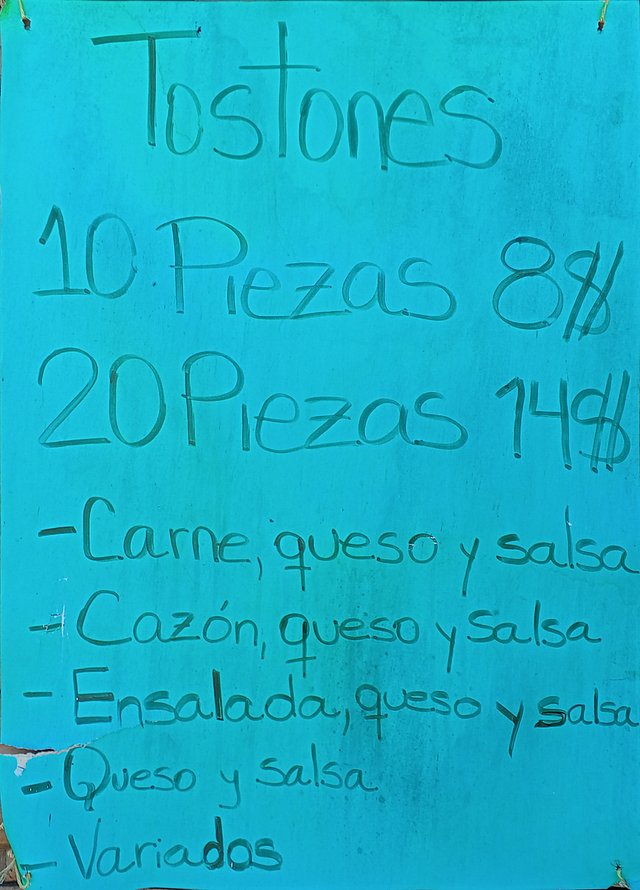 Tostones
10 Piezas 8$
20 Piezas 14$
- Carne, queso y salsa
- Cazón, queso y salsa
- Ensalada, queso y salsa
- Queso y salsa
- Variados